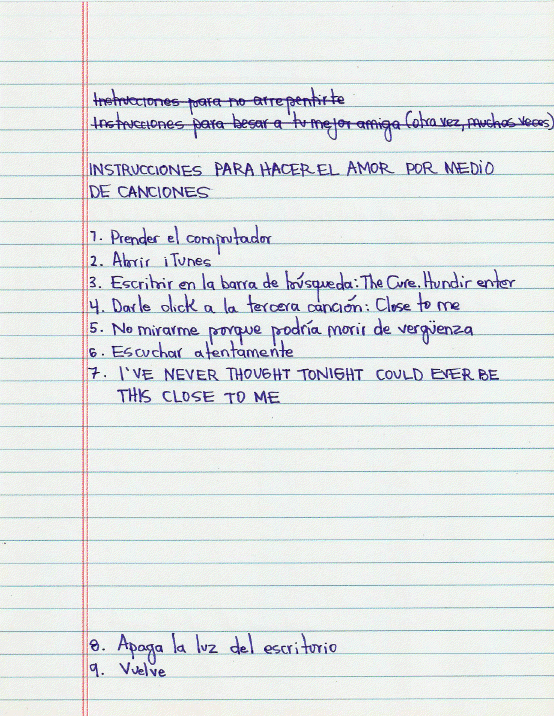 Instrucciones para no arrepentirte
Instrucciones para besar a tu mejor amiga (otra vez, muchas veces)
INSTRUCCIONES PARA HACER EL AMOR POR MEDIO
DE CANCIONES
1. Prender el computador
2. Abrir iTunes
3. Escribir en la barra de búsqueda: The Cure. Hundir enter
4. Darle click a la tercera canción: Close to me
5. No mirarme porque podría morir de vergüenza
6. Escuchar atentamente
7. I'VE NEVER THOUGHT TONIGHT COULD EVER BE
THIS CLOSE TO ME
8. Apaga la luz del escritorio
9. Vuelve